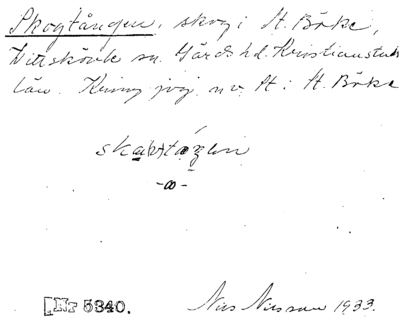 Skogtången, skog i St. Böke,
Vittskövle sn. Gärds hd. Kristianstads
län. Kring jvg. nv. St. i St. Böke
ska(o)tåŋɛn
-∞-
[Nr 5340. Nils Nilsson 1933.